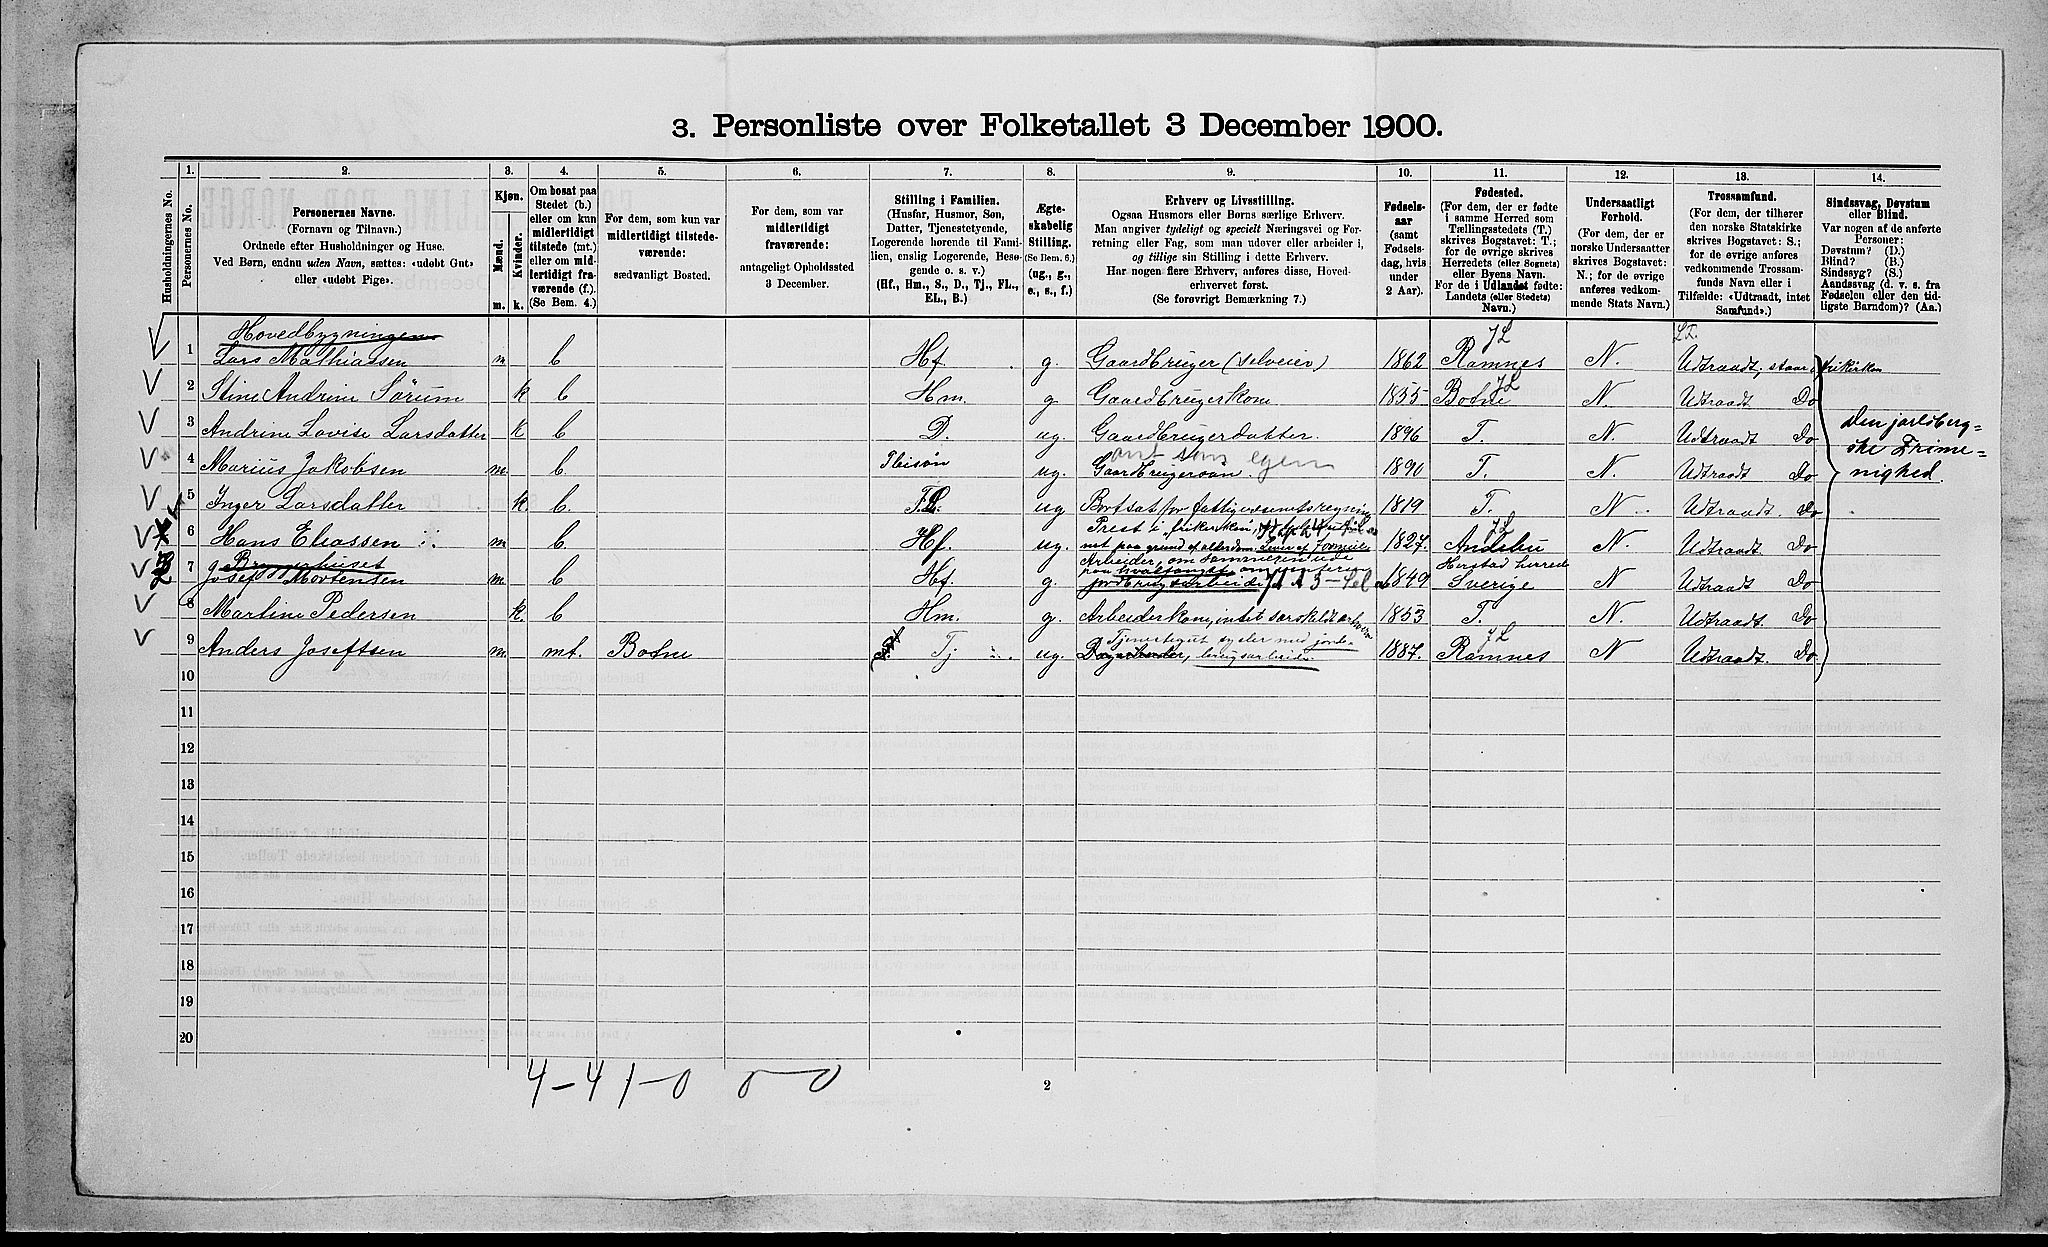 3. Personliste over Folketallet 3 December 1900.
Husholdningernes No.
1.
Personernes No.
2.
Personernes Navne.
(Fornavn og Tilnavn.)
Ordnede efter Husholdninger og Huse.
Ved Børn, endnu uden Navn, sættes: «udøbt Gut»
eller «udøbt Pige».
3.
Kjøn.
Mænd.
Kvinder.
m.
k.
4.
Om bosat paa
Stedet (b.)
eller om kun
midlertidigt
tilstede (mt.)
eller om mid-
lertidigt fra-
værende (f.).
(Se Bem. 4.)
5.
For dem, som kun var
midlertidigt tilstede-
værende:
sædvanligt Bosted.
6.
For dem, som var
midlertidigt
fraværende:
antageligt Opholdssted
3 December.
7.
Stilling i Familien.
(Husfar, Husmor, Søn,
Datter, Tjenestetyende,
Logerende hørende til Fami-
lien, enslig Logerende, Besø-
gende o. s. v.)
(Hf., Hm., S., D., Tj., FL.,
EL., B.)
8.
Ægte-
skabelig
Stilling.
(Se Bem. 6.)
(ug., g.,
e., s., f.)
9.
Erhverv og Livsstilling.
Ogsaa Husmors eller Børns særlige Erhverv.
Man angiver tydeligt og specielt Næringsvei og For-
retning eller Fag, som man udøver eller arbeider i,
og tillige sin Stilling i dette Erhverv.
Har nogen flere Erhverv, anføres disse, Hoved-
erhvervet først.
(Se forøvrigt Bemærkning 7.)
10.
Fødsels-
aar
(samt
Fødsels-
dag, hvis
under
2 Aar).
11.
Fødested.
(For dem, der er fødte
i samme Herred som
Tællingsstedets (T.)
skrives Bogstavet: T.;
for de øvrige skrives
Herredets (eller Sognets)
eller Byens Navn.
For de i Udlandet fødte:
Landets (eller Stedets)
Navn.)
12.
Undersaatligt
Forhold.
(For dem, der er
norske Undersaatter
skrives Bogstavet:
N.; for de øvrige
anføres vedkom-
mende Stats Navn.)
13.
Trossamfund.
(For dem, der tilhører
den norske Statskirke
skrives Bogstavet: S.;
for de øvrige anføres
vedkommende Trossam-
funds Navn eller i
Tilfælde: «Udtraadt, intet
Samfund».)
14.
Sindssvag, Døvstum
eller Blind.
Var nogen af de anførte
Personer:
Døvstum? (D.)
Blind? (B.)
Sindssyg? (S.)
Aandssvag (d. v. s. fra
Fødselen eller den tid-
ligste Barndom)? (Aa.)
Hovedbygningen
1 Lars Mathiassen m. b Hf. g. Gaardbruger (selveier) 1862 Ramnes N. Udtraadt, staar i frikirken
2 Stine Andrine Sørum k b Hm. g. Gaardbrugerkone 1855 Botne N. Udtraadt Do
3 Andrine Lovise Larsdatter k b D. ug. Gaardbrugerdatter. 1896 T. N. Udtraadt Do
4 Marius Jakobsen m. b. ug. Gaardbrugersøn 1890 T. N. Udtraadt Do
5 Inger Larsdatter k b. ug Bortsat for fattigvæsenets regning 1819 T. N. Udtraadt. Do
6 Hans Eliassen m b. Hf. ug. Prest i frikirken, 1827. Andebu N. Udtraadt Do
Bryggerhuset
7 Josef Mortensen m. b Hf. g. Arbeider, om sommeren ude paa hvalfangst, om vinteren jordbrugsarbeide 1849 Herstad herred Sverige N Udtraadt Do
8 Martine Pedersen k. b Hm. g. Arbeiderkone, intet særskildt erhverv 1853 T. N. Udtraadt. Do
9 Anders Joseftsen m. mt. Botne Tj ug. Tjenestegut sysler med jord-brugsarbeide. 1887. Ramnes N Udtraadt. Do
Den jarlsberg-
ske Frime-
nighed.
10
11
12
13
14
15
16
17
18
19
20
4–4 1–0 0–0
2